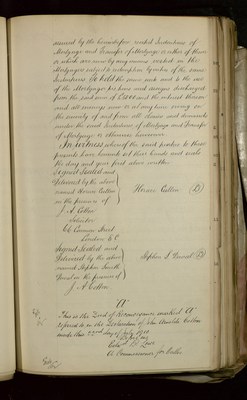 secured by the hereinbefore recited Indentures of
Mortgage and Transfer of Mortgage or either of them
or which are now by any means vested in the
Mortgagee subject to redemption by virtue of the same
Indentures To hold the same unto and to the use
of the Mortgagor his heirs and assigns discharged
from the said sum of and the interest thereon
and all moneys now or at any time owing on
the security of and from all claims and demands
under the said Indentures of Mortgage and Transfer
of Mortgage or otherwise howsoever
In witness whereof the said parties to these
presents have hereunto set their hands and seals
the day and year first above written
Signed Sealed and
Delivered by the above
named Horace Cullen
in the presence of
J A
Solicitor
Cannon Street
London E C
Horace Cullen
Signed Sealed and
Delivered by the above
named Stephen Smith
in the presence of
J A
Stephen S
"A"
This is the Deed of Reconveyance marked A
referred to in the Declaration of John
made this 22nd day of July 1910
Before me
A Commissioner for Oaths